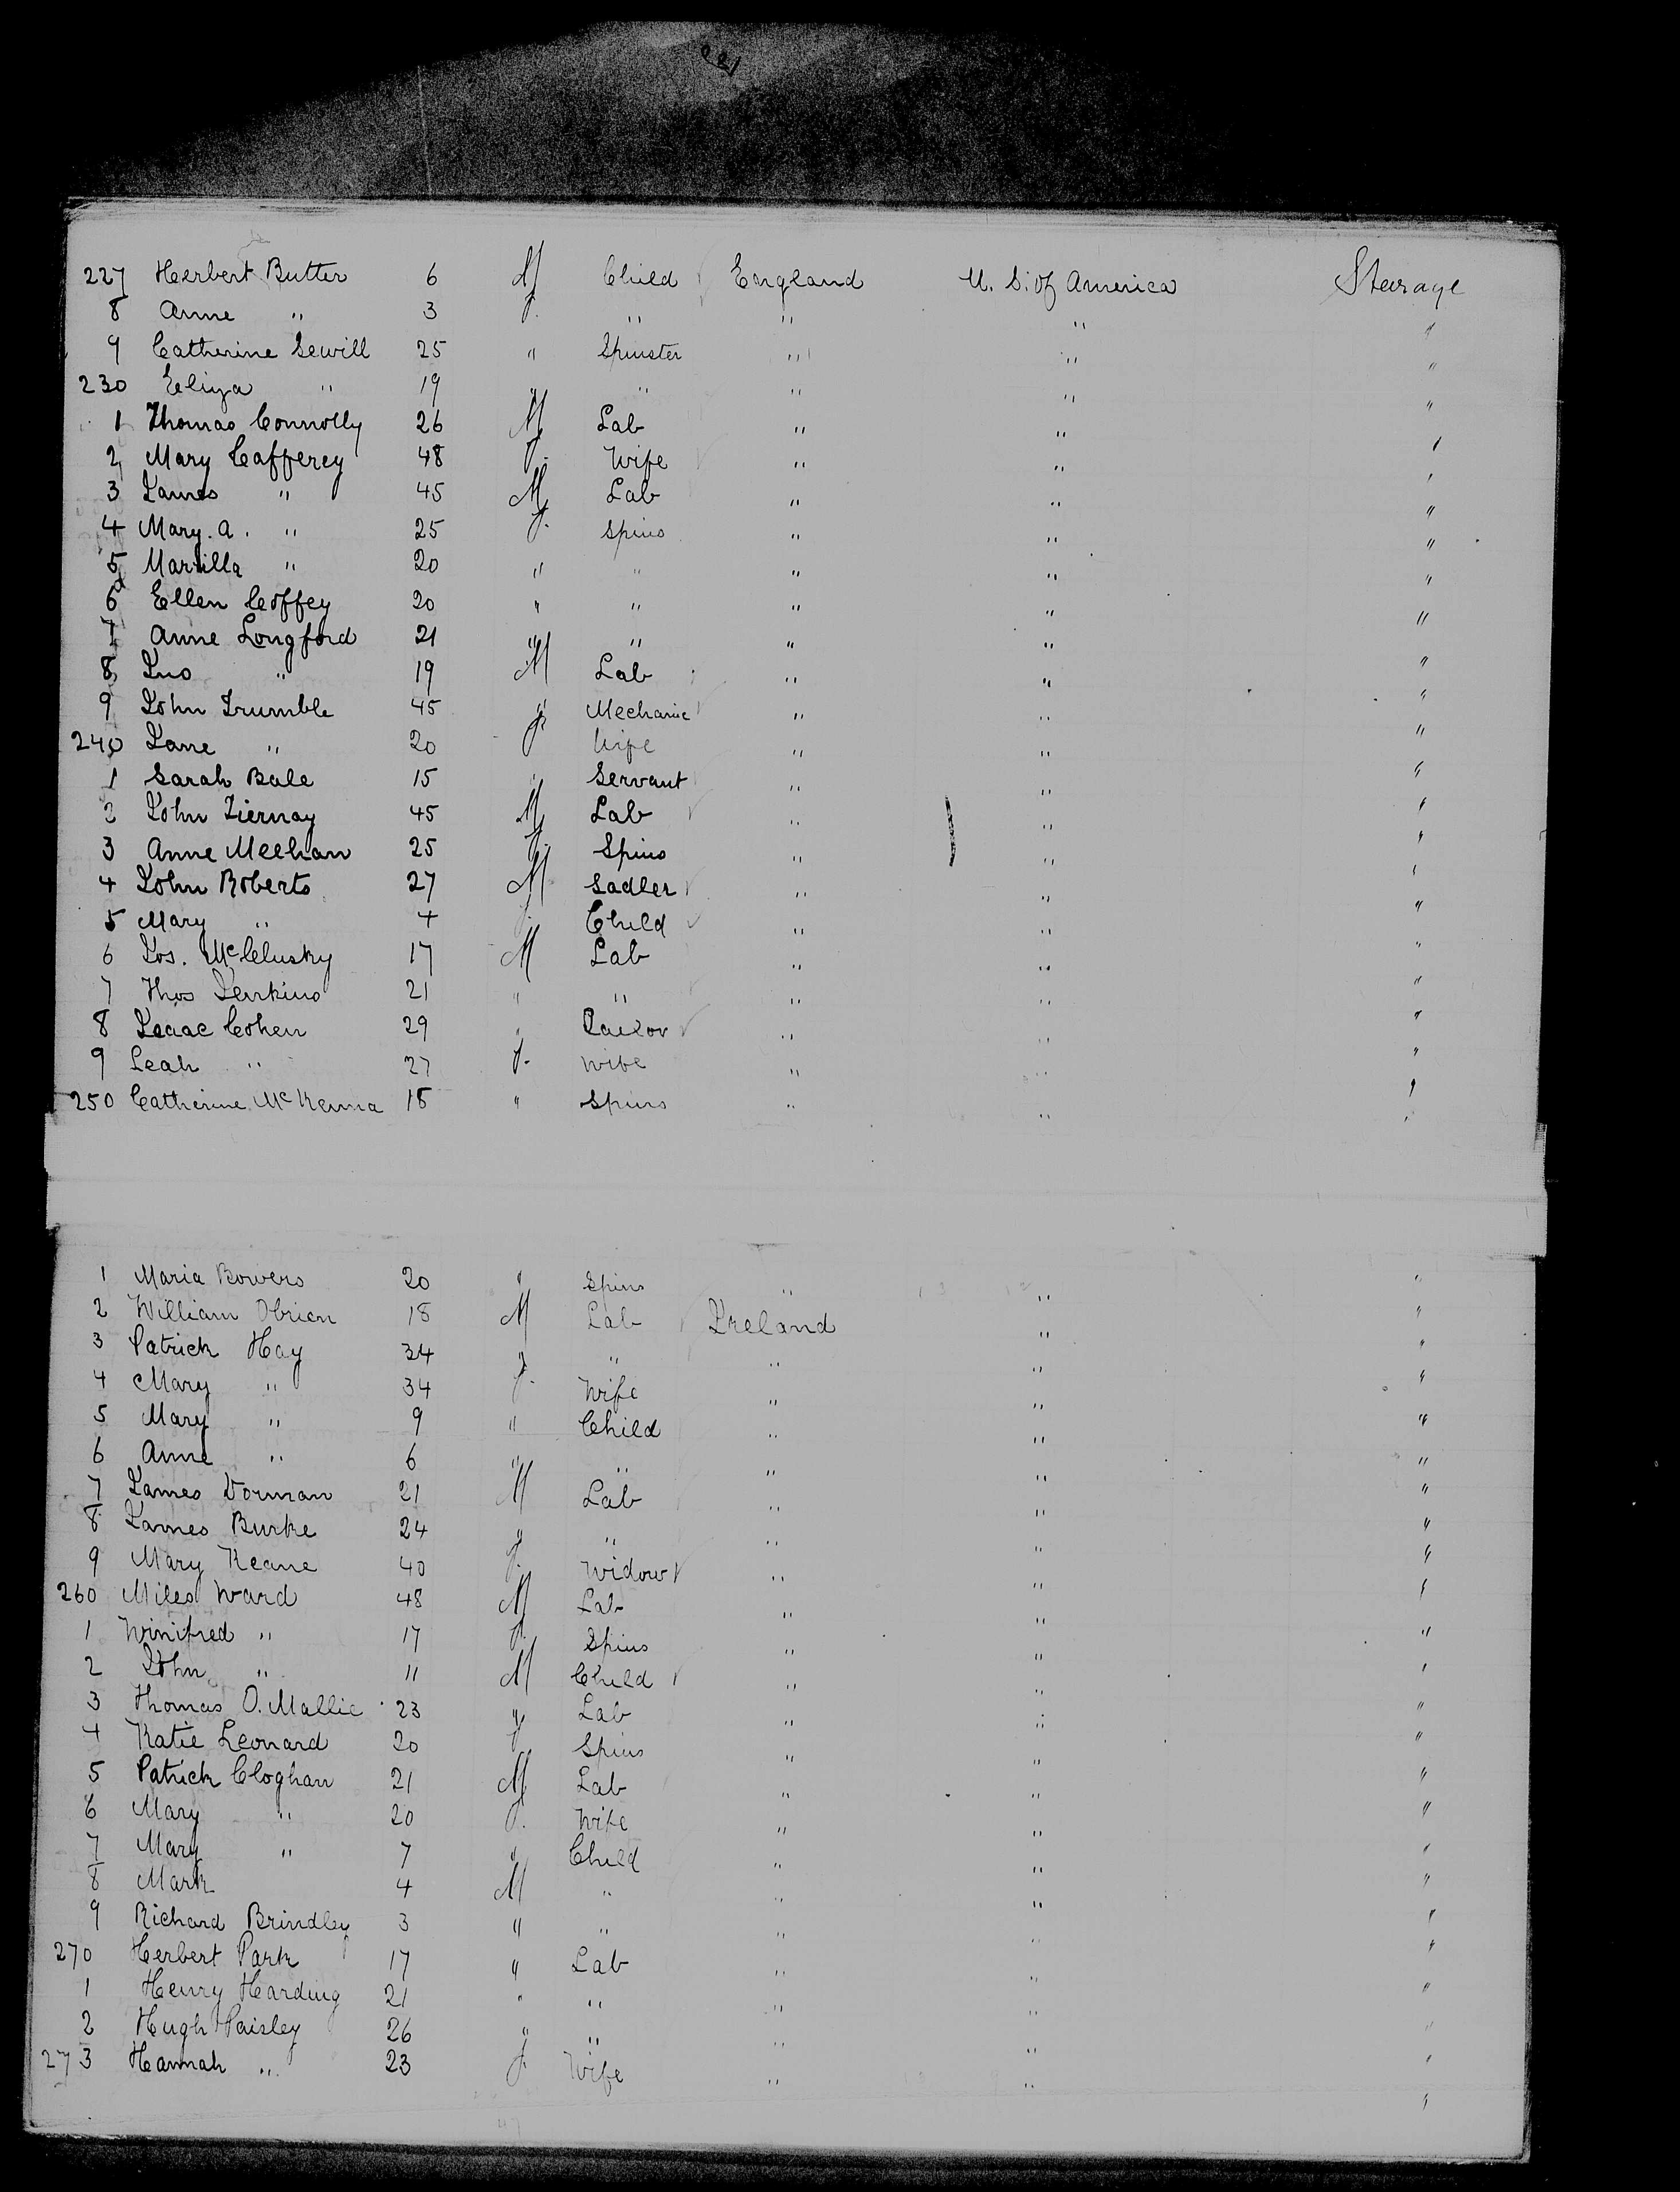 227 Herbert Butter 6 M Child England U. S. of America Stearage
8 Anne " 3 f. " " " "
9 Catherine Sewill 25 " Spinster " " "
230 Eliza " 19 " " " " "
1 Thomas Connolly 26 M Lab " " "
2 Mary Cafferey 48 f. Wife " " "
3 James " 45 M Lab " " "
4 Mary. A. " 25 f. Spins " " "
5 " 20 " " " " "
6 Ellen Coffey 20 " " " " "
7 Anne Longford 21 " " " " "
8 Jno " 19 M Lab " " "
9 John Trumble 45 " Mechanic " " "
240 Jane " 20 f. Wife " " "
1 Sarah Bale 15 " Servant " " "
2 John Tiernay 45 M Lab " " "
3 Anne Meehan 25 f. Spins " " "
4 John Roberts 27 M Sadler " " "
5 Mary " 4 f. Child " " "
6 Jos. McClusky 17 M Lab " " "
7 Thos Jenkins 21 " " " " "
8 Isaac Cohen 29 " Tailor " " "
9 Leah " 27 f. Wife " " "
250 Catherine McKenna 18 " Spins " " "
1 Maria Bowers 20 " Spins " " "
2 William Obrien 18 M Lab Ireland " "
3 Patrick Hay 34 " " " " "
4 Mary " 34 f. Wife " " "
5 Mary " 9 " Child " " "
6 Anne " 6 " " " " "
7 James Dorman 21 M Lab " " "
8 James Burke 24 " " " " "
9 Mary Keane 40 f. Widow " " "
260 Miles Ward 48 M Lab " " "
1 Winifred " 17 f. Spins " " "
2 John " 11 M Child " " "
3 Thomas O. Mallie 23 " Lab " " "
4 Katie Leonard 20 f Spins " " "
5 Patrick Cloghan 21 M Lab " " "
6 Mary " 20 f. Wife " " "
7 Mary " 7 " Child " " "
8 Mark 4 M " " " "
9 Richard Brindley 3 " " " " "
270 Herbert Park 17 " Lab " " "
1 Henry Harding 21 " " " " "
2 Hugh Paisley 26 " " " " "
273 Hannah " 23 f. Wife " " "